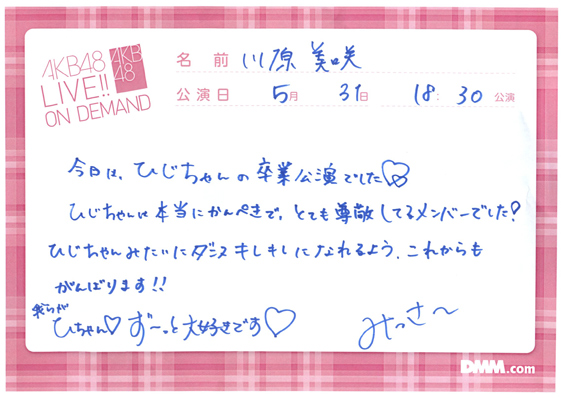 AKB48
LIVE!!
ON DEMAND
AKB
48
名 前 川原 美咲
公演日 5月 31日 18:30 公演
今日は、ひじちゃんの卒業公演でした♡
ひじちゃんは本当にかんぺきで、とても尊敬してるメンバーでした!
ひじちゃんみたいにダンスキレキレになれるよう、これからも
がんばります!!
我らが
ひちゃん♡ ず〜っと大好きです♡
みっさ〜
DMM.com